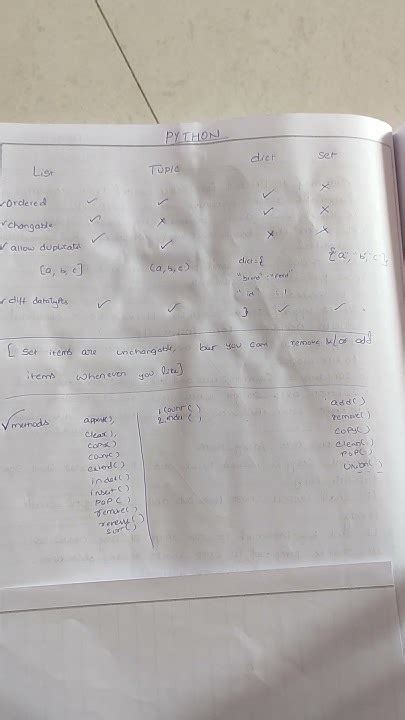 PYTHON
List Tuple dict set
✓ Ordered ✓ ✓ ✓ ✗
✓ changable ✓ ✗ ✓ ✗
✓ allow duplicate ✓ ✓ ✗ ✗
[a, b, c] (a, b, c) dict={ {'a', 'b', 'c'}
"brand":"Ford"
"id" : 1
✓ diff datatypes ✓ ✓ } ✓ ✓
[ Set items are unchangable, but you can remove &/or add
items whenever you like]
✓ methods append(), 1 count() add()
clear(), 2 index() remove()
copy() copy()
count() clear()
extend() pop()
index() union()
insert()
pop()
remove()
reverse()
sort()